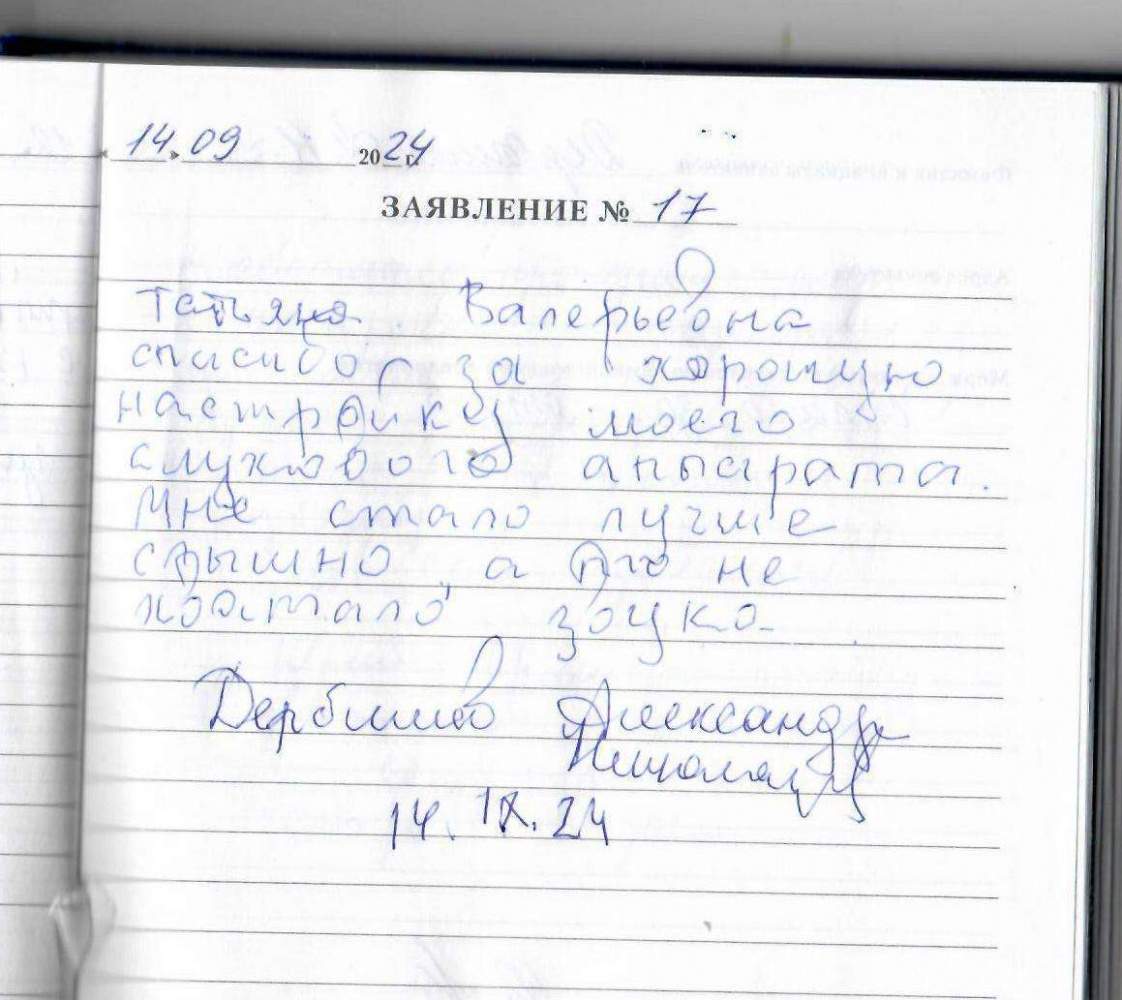 14.09 2024 г.
ЗАЯВЛЕНИЕ № 17
Татьяна Валерьевна
спасибо за хорошую
настройку моего
слухового аппарата.
Мне стало лучше
слышно, а то не
хватало звука.
Александр
14.IX.24